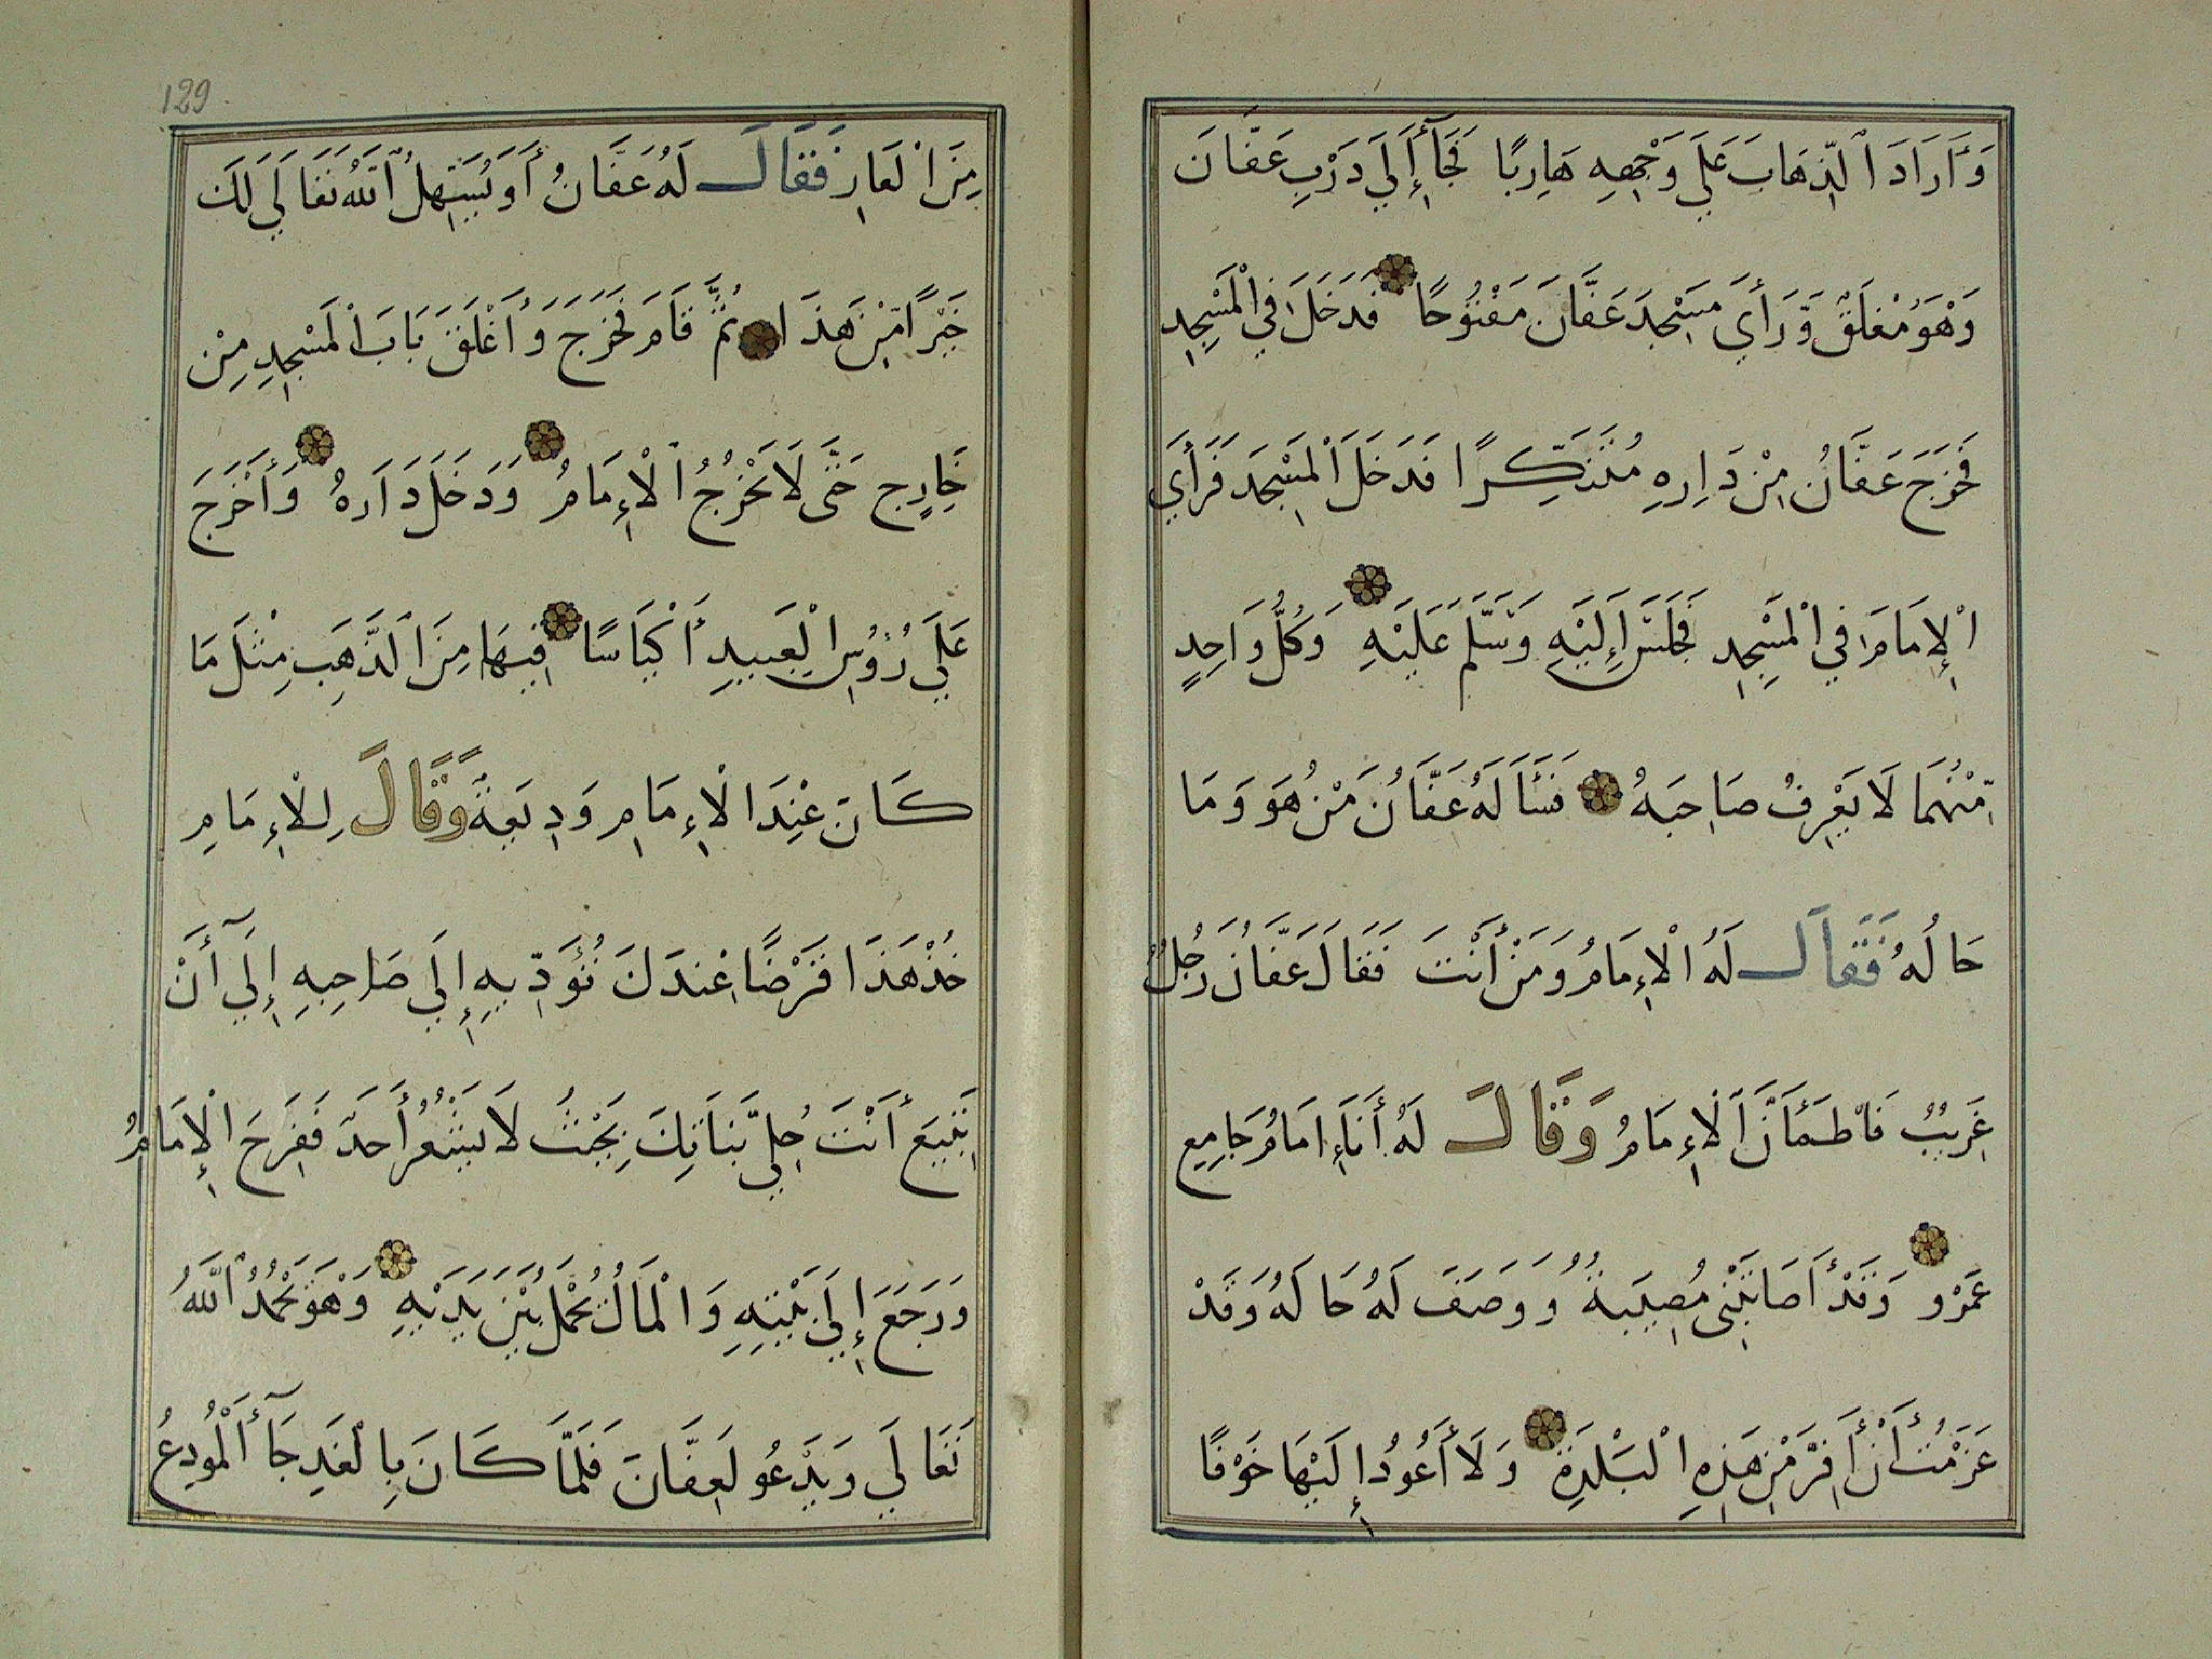 وَأَرَادَ الذِّهَابَ عَلَي وَجْهِهِ هَارِبًا فَجَآءَ إِلَي دَرْبِ عَفَّانَ
وَهْوَ مُغْلَقٌ وَّرَأَيَ مَسْجِدَ عَفَّانَ مَفْتُوحًا فَدَخَلَ فِي الْمَسْجِدِ
فَخَرَجَ عَفَّانُ مِنْ دَارِهِ مُتَنَكِّرًا فَدَخَلَ الْمَسْجِدَ فَرَأَيَ
الْإِمَامَ فِي الْمَسْجِدِ فَجَلَسَ إِلَيْهِ وَسَلَّمَ عَلَيْهِ وَكُلُّ وَاحِدٍ
مِّنْهُمَا لَا يَعْرِفُ صَاحِبَهُ فَسَأَلَهُ عَفَّانُ مَنْ هُوَ وَمَا
حَالُهُ فَقَالَ لَهُ الْإِمَامُ وَمَنْ أَنْتَ فَقَالَ عَفَّانُ رَجُلٌ
غَرِيبٌ فَاطْمَأَنَّ الْإِمَامُ وَقَالَ لَهُ أَنَا إِمَامُ جَامِعِ
عَمْرٍو وَقَدْ أَصَابَتْنِي مُصِيبَةٌ وَوَصَفَ لَهُ حَالَهُ وَقَدْ
عَزَمْتُ أَنْ أَفِرَّ مِنْ هَذِهِ الْبَلْدَةِ وَلَا أَعُودُ إِلَيْهَا خَوْفًا
129
مِنَ الْعَارِ فَقَالَ لَهُ عَفَّانُ أَوَ يُسَهِّلُ اللهُ تَعَالَي لَكَ
خَيْرًا مِّنْ هَذَا ثُمَّ قَامَ فَخَرَجَ وَأَغْلَقَ بَابَ الْمَسْجِدِ مِنْ
خَارِجٍ حَتَّى لَا يَخْرُجُ الْإِمَامُ وَدَخَلَ دَارَهُ وَأَخْرَجَ
عَلَي رُؤُسِ الْعَبِيدِ أَكْيَاسًا فِيهَا مِنَ الذَّهَبِ مِثْلَ مَا
كَانَ عِنْدَ الْإِمَامِ وَدِيعَةً وَّقَالَ لِلْإِمَامِ
خُذْ هَذَا قَرْضًا عِنْدَكَ تُؤَدِّيهِ إِلَي صَاحِبِهِ إِلَي أَنْ
تَبِيعَ أَنْتَ حُلِيَّ بَنَاتِكَ بِحَيْثُ لَا يَشْعُرُ أَحَدٌ فَفَرِحَ الْإِمَامُ
وَرَجَعَ إِلَي بَيْتِهِ وَالْمَالُ يُحْمَلُ بَيْنَ يَدَيْهِ وَهْوَ يَحْمَدُ اللهَ
تَعَالَي وَيَدْعُو لِعَفَّانَ فَلَمَّا كَانَ بِالْغَدِ جَآءَ الْمُودِعُ